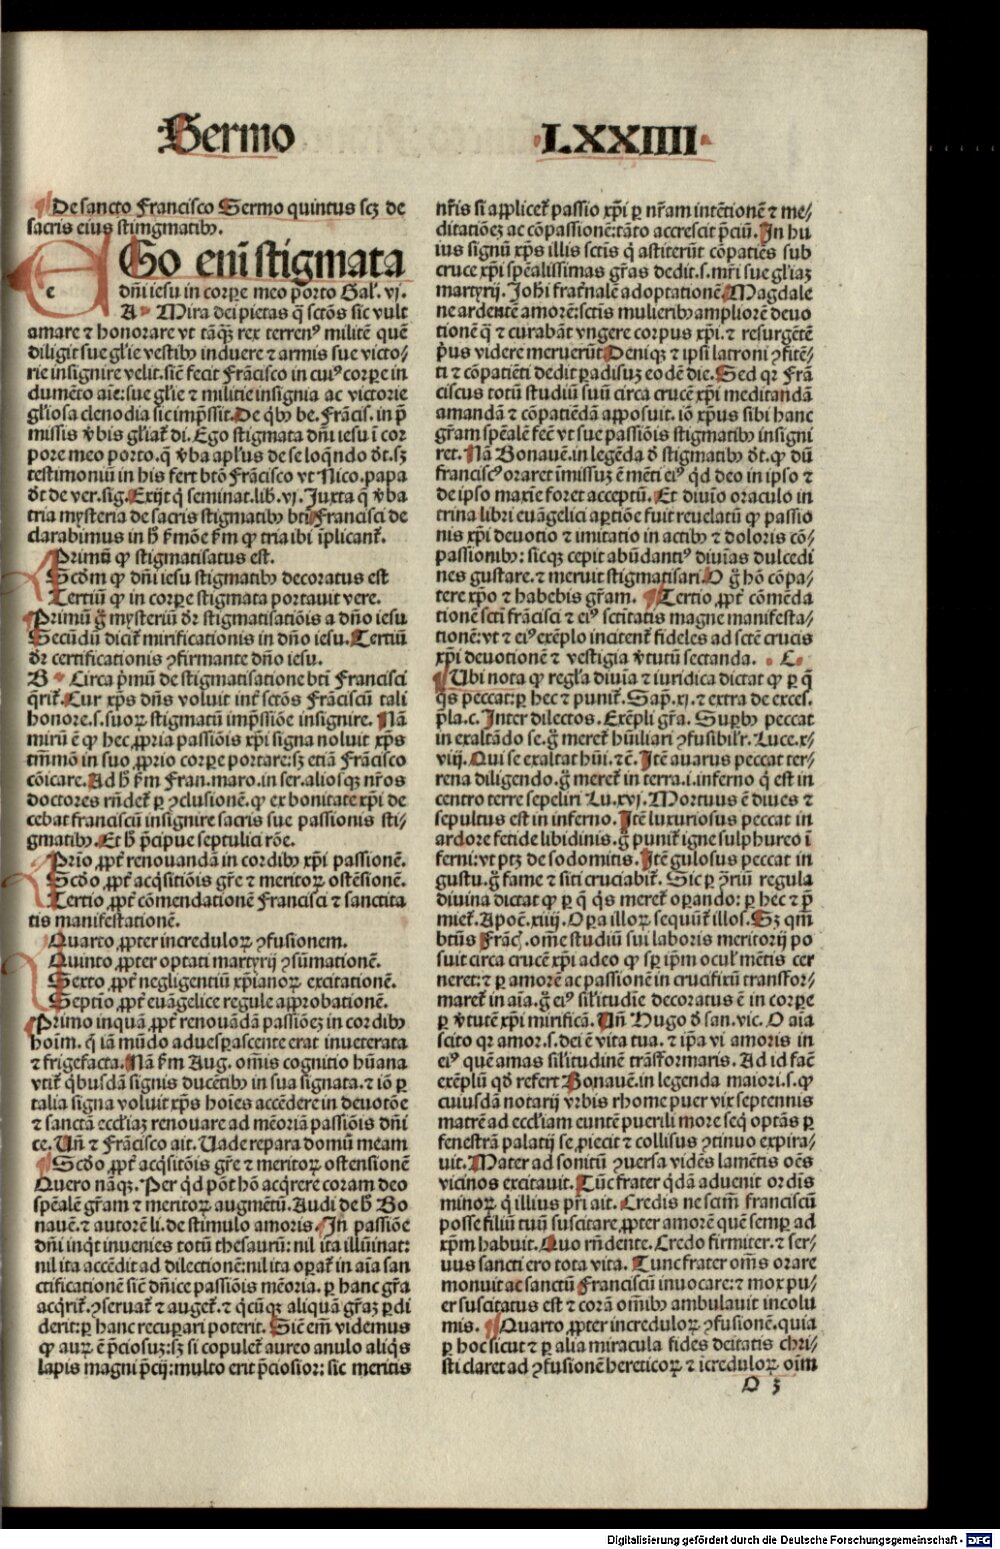 Sermo
LXXIIII
¶ De sancto Francisco Sermo quintus scʒ de
sacris eius stimgmatibꝰ.
EGo eni̅ stigmata
dn̅i iesu in corpe meo porto Gal̅. vj.
A Mira dei pietas q̅ sctōs sic vult
amare ⁊ honorare vt tāqʒ rex terrenꝰ militē quē
diligit sue gl̅ie vestibꝰ induere ⁊ armis sue victo/
rie insignire velit. sic̄ fecit Frācisco in cuiꝰ corpe in
dumēto aīe: sue gl̅ie ⁊ militie insignia ac victorie
gl̅iosa clenodia sic imp̄ssit. De q̇bꝰ be. Frācis. in p̄
missis v̄bis gl̅iat̄ di. Ego stigmata dn̅i iesu ī cor
pore meo porto. q̄ v̄ba apl̅us de se loqn̄do d̄t. sʒ
testimoniū in his fert btō Frācisco vt Nico. papa
d̄t de ver. sig. Exijt q̄ seminat. lib. vj. Juxta q̄ v̄ba
tria mysteria de sacris stigmatibꝰ bti̅ Francisci de
clarabimus in h̄ s̄mōe s̄m ꝙ tria ibi īplicant̄.
Primū ꝙ stigmatisatus est.
Scd̅m ꝙ dn̅i iesu stigmatibꝰ decoratus est
Tertiū ꝙ in corpe stigmata portavit vere.
Primū g̊ mysteriū d̄r stigmatisatiōis a dn̅o iesu
Secūdū dicit̄ mirificationis in dn̅o iesu. Tertiū
d̄r certificationis ꝯfirmante dn̅o iesu.
B Circa p̄mū de stigmatisatione bti̅ Francisci
q̄rit̄. Cur xp̅s dn̅s voluit int̄ sctōs Frāciscū tali
honore. s. suoꝝ stigmatū imp̄ssiōe insignire. Nā
mirū ē ꝙ hec ꝓpria passiōis xp̅i signa noluit xp̅s
tm̅mō in suo ꝓprio corpe portare: sʒ etiā Frācisco
cōicare. Ad h̄ s̄m Fran. maro. in ser. aliosqʒ nr̅os
doctores rn̅det̄ p ꝯclusionē. ꝙ ex bonitate xp̅i de
cebat franciscū insignire sacris sue passionis sti/
gmatibꝰ. Et h̄ p̄cipue septulici rōe.
Prīo ꝓpt̄ renouandā in cordibꝰ xp̅i passionē.
Scd̅o ꝓpt̄ acq̇sitiōis gr̄e ⁊ meritoꝝ ostēsionē.
Tertio ꝓpt̄ cōmendationē Francisci ⁊ sanctita
tis manifestationē.
Quarto ꝓpter increduloꝝ ꝯfusionem.
Quinto ꝓpter optati martyrij ꝯsūmationē.
Sexto ꝓpt̄ negligentiū xp̅ianoꝝ excitationē.
Septīo ꝓpt̄ euāgelice regule approbationē.
Primo inquā ꝓpt̄ renouādā passiōeʒ in cordibꝰ
hoīm. q̄ iā mūdo aduesp̄ascente erat inueterata
⁊ frigefacta. Nā s̄m Aug. om̅is cognitio hūana
vtit̄ q̇busdā signis ducētibꝰ in sua signata. ⁊ iō p
talia signa voluit xp̅s hoīes accēdere in deuotōe
⁊ sanctā eccl̅iaʒ renouare ad mēoriā passiōis dn̅i
ce. Un̄ ⁊ Frācisco ait. Uade repara domū meam
¶ Scd̅o ꝓpt̄ acq̇sitōis gr̄e ⁊ meritoꝝ ostensionē
Quero nāqʒ. Per q̇d pōt hō acq̇rere coram deo
spēalē gr̄am ⁊ meritoꝝ augmētū. Audi de h̄ Bo
nauē. ⁊ autorē li. de stimulo amoris. In passiōe
dn̅i inq̇t inuenies totū thesaurū: nil ita illūinat:
nil ita accēdit ad dilectionē: nil ita opat̄ in aīa san
ctificationē sic̄ dn̅ice passiōis mēoria. p hanc gr̄a
acq̇rit̄. ꝯseruat̄ ⁊ auget̄. ⁊ q̇cūqʒ aliquā gr̄aʒ pdi
derit: p hanc recuperari poterit. Sic̄ em̅ videmus
ꝙ auꝝ ē p̄ciosuʒ: sʒ si copulet̄ aureo anulo aliq̇s
lapis magni p̄cij: multo erit p̄ciosior: sic meritis
nr̅is si applicet̄ passio xp̅i p nr̅am intētionē ⁊ me/
ditatiōeʒ ac cōpassionē: tāto accrescit p̄ciū. In hu
ius signū xp̅s illis sctīs q̄ astiterūt cōpatiētes sub
cruce xp̅i spēalissimas gr̄as dedit. s. mr̅i sue gl̅iaʒ
martyrij. Joh̅i frat̄nalē adoptationē. Magdale
ne ardentē amorē: sctīs mulieribꝰ ampliorē deuo
tionē q̄ ⁊ curabāt vngere corpus xp̅i. ⁊ resurgētē
p̄us videre meruerūt. Deniqʒ ⁊ ipsi latroni ꝯfitē/
ti ⁊ cōpatiēti dedit padisuʒ eodē die. Sed qr Frā
ciscus totū studiū suū circa crucē xp̅i meditandā
amandā ⁊ cōpatiēdā apposuit. iō xp̅us sibi hanc
gr̄am spēalē fec̄ vt sue passiōis stigmatibꝰ insigni
ret. Nā Bonauē. in legēda d̄ stigmatibꝰ d̄t. ꝙ dū
franciscꝰ oraret īmissuʒ ē mēti eiꝰ q̇d deo in ipso ⁊
de ipso maxīe foret acceptū. Et diuīo oraculo in
trina libri euāgelici aptiōe fuit reuelatū ꝙ passio
nis xp̅i deuotio ⁊ imitatio in actibꝰ ⁊ doloris cō/
passionibꝰ: sicqʒ cepit abūdantiꝰ diuīas dulcedi
nes gustare. ⁊ meruit stigmatisari. O g̊ hō cōpa/
tere xp̅o ⁊ habebis gr̄am. ¶ Tertio ꝓpt̄ cōmēda
tionē sctī frācisci ⁊ eiꝰ sctītatis magne manifesta/
tionē: vt ⁊ eiꝰ exēplo incitent̄ fideles ad sctē crucis
xp̅i deuotionē ⁊ vestigia v̄tutū sectanda. C
Ubi nota ꝙ regl̅a diuīa ⁊ iuridica dictat ꝙ p q̄
q̇s peccat: p hec ⁊ punit̄. Sap̄. xj. ⁊ extra de exces.
p̄la. c. Inter dilectos. Exēpli gr̄a. Supbꝰ peccat
in exaltādo se. g̊ meret̄ hūiliari ꝯfusibil̅r. Luce. x/
viij. Qui se exaltat hūi. ⁊c̄. Itē auarus peccat ter/
rena diligendo. g̊ meret̄ in terra. i. inferno q̄ est in
centro terre sepeliri Lu. xvj. Mortuus ē diues ⁊
sepultus est in inferno. Itē luxuriosus peccat in
ardore fetide libidinis. g̊ punit̄ igne sulphureo ī
ferni: vt ptʒ de sodomitis. Itē gulosus peccat in
gustu. g̊ fame ⁊ siti cruciabit̄. Sic p ꝯ̄riū regula
diuina dictat ꝙ p q̄ q̇s meret̄ opando: p hec ⁊ p̄
miet̄. Apoc̄. xiiij. Opa illoꝝ sequūt̄ illos. Sʒ qm̅
btūs Frāc̄. om̅e studiū sui laboris meritorij po
suit circa crucē xp̅i adeo ꝙ sp ip̅m ocul̅ mētis cer
neret: ⁊ p amorē ac passionē in crucifixū transfor/
maret̄ in aīa. g̊ eiꝰ sil̅itudīe decoratus ē in corpe
p v̄tutē xp̅i mirificā. Un̄ Hugo d̄ san. vic. O aīa
scito qr amor. s. dei ē vita tua. ⁊ ip̅a vi amoris in
eiꝰ quē amas sil̅itudinē trāsformaris. Ad id fac̄
exēplū qd̄ refert Bonauē. in legenda maiori. s. ꝙ
cuiusdā notarij vrbis rhome puer vix septennis
matrē ad eccl̅iam euntē puerili more seq̇ optās p
fenestrā palatij se ꝓiecit ⁊ collisus ꝯtinuo expira/
uit. Mater ad sonitū ꝯuersa vidēs lamētis oēs
vicinos excitauit. Tūc frater q̇dā aduenit ordīs
minoꝝ q̄ illius pr̅i ait. Credis ne scm̅ franciscū
posse filiū tuū suscitare ꝓpter amorē quē semp ad
xp̅m habuit. Quo rn̅dente. Credo firmiter. ⁊ ser/
uus sancti ero tota vita. Tunc frater om̅s orare
monuit ac sanctū Franciscū inuocare: ⁊ mox pu/
er suscitatus est ⁊ corā om̅ibꝰ ambulauit incolu
mis. ¶ Quarto ꝓpter increduloꝝ ꝯfusionē. quia
p hoc sicut ⁊ p alia miracula fides deitatis chri/
sti claret ad ꝯfusionē hereticoꝝ ⁊ īcreduloꝝ oīm
O 3
Digitalisierung gefördert durch die Deutsche Forschungsgemeinschaft - DFG